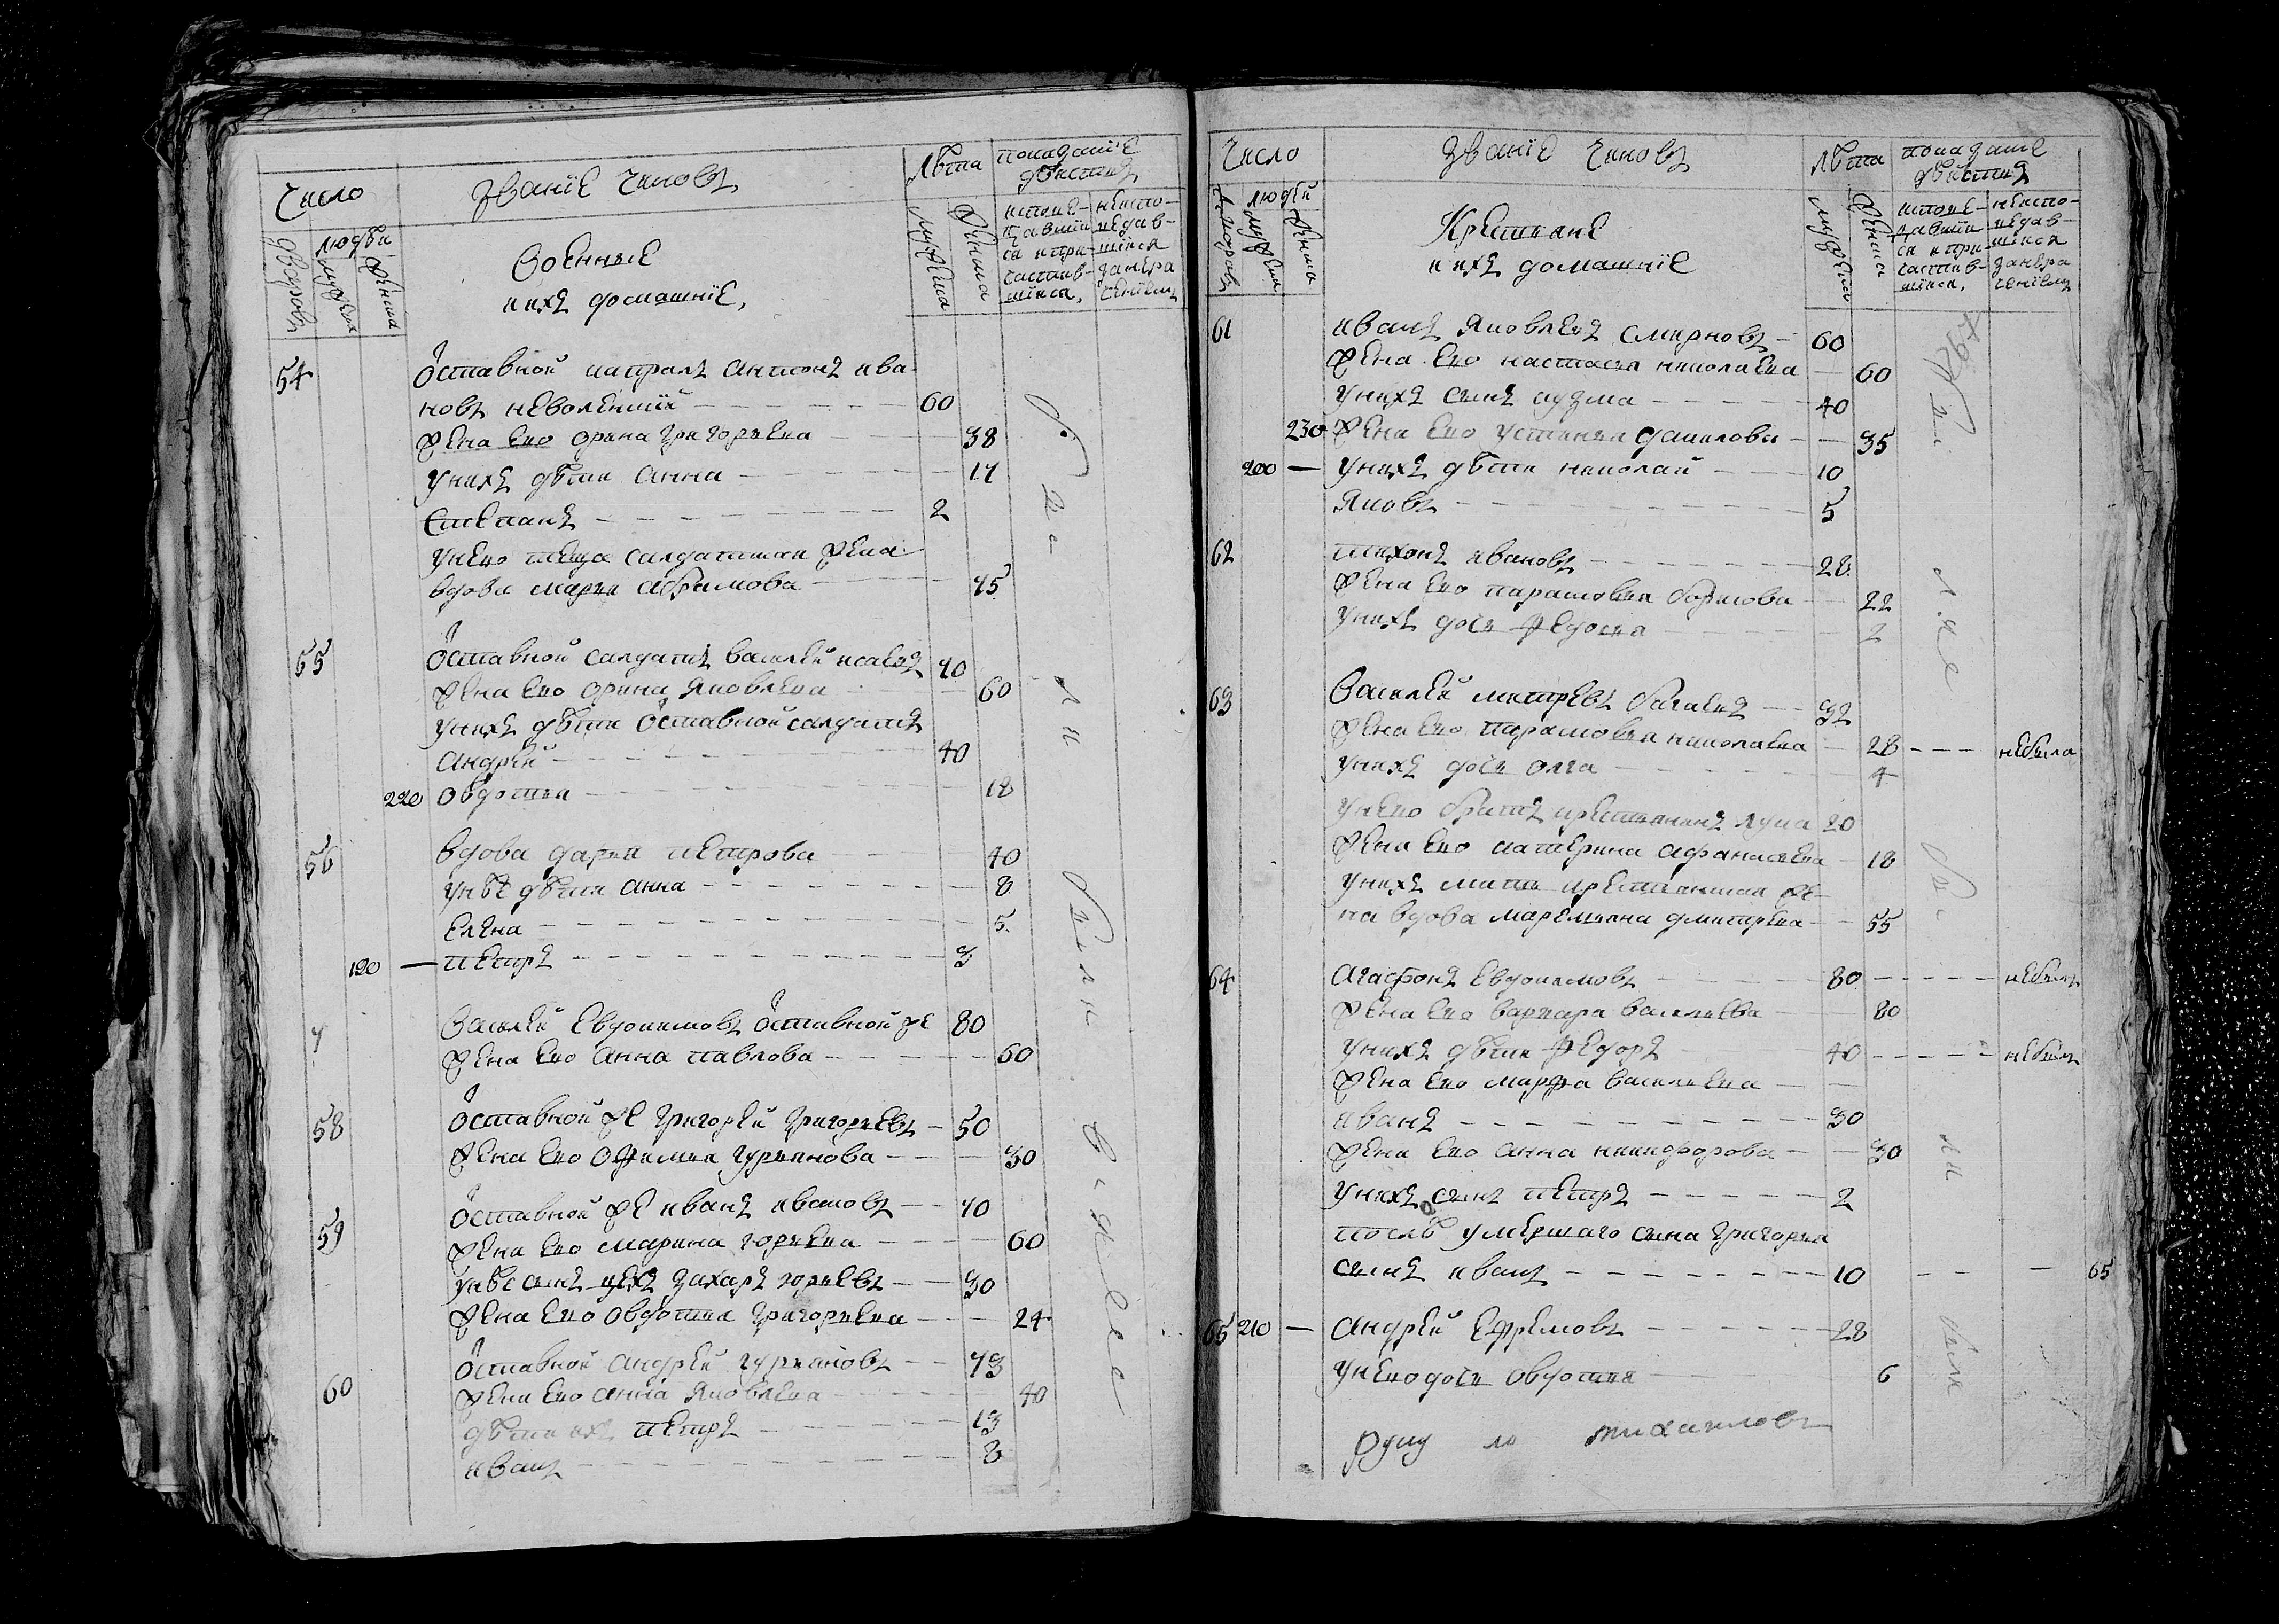 Число
Званїе чиновъ
Лѣта
показанїе
дѣиствъ
дворовъ
людѣи
мужеска
женска
Военные
и ихъ домашнїе,
мужеска
женска
исповѣ-
давшїи
ся и при-
частив-
шїися,
неиспо-
ведав-
шїися
за нера
ченїемъ
54
Оставной капралъ Антонъ Ива
новъ неволенский 60
жена ево Орина Григорьева 38
у нихъ дѣти Анна 17
Степанъ 2
у нево теща салдатская жена
вдова Марья Абрамова 75
55
Оставной салдатъ Василей Исаевъ 70
жена ево Орина Яковлева 60
у нихъ дѣти Оставной салдатъ
Андрей 40
220 Овдотья 18
56
вдова Дарья Петрова 40
у нѣе дѣти Анна 8
Елена 5
190 — Петръ 3
7
Василей Евдокимовъ Оставной же 80
жена ево Анна Павлова 60
58
Оставной же Григорей Григорьевъ 50
жена ево Офимья Гурьянова 30
59
Оставной же Иванъ Ивановъ 70
жена ево Марина Юрьева 60
у нѣе сынъ Захаръ Юрьевъ 30
жена ево Овдотья Григорьева 24
Оставной Андрей Гурьяновъ 43
60
жена ево Анна Яковлева 40
дѣти их Петръ 13
Иванъ 8
были
были
всѣ
Число
Званїе чиновъ
Лѣта
показанїе
дѣиствъ
дворовъ
людѣй
мужеска
женска
Крестьяне
и ихъ домашнїе
мужеска
женска
исповѣ-
давшїи
ся и при-
частив-
шїися,
неиспо-
ведав-
шїися
за нера
ченїемъ
61
Иванъ Яковлевъ Смирновъ 60
жена ево Настасья Николаева 60
у нихъ сынъ Кузма 40
230 жена ево Устинья Данилова 35
200 — у нихъ дѣти Николай 10
Яковъ 5
62
Тихонъ Ивановъ 28
жена ево Парасковья Борисова 22
у нихъ дочь Федосья 2
63
Василей Митревъ 32
жена ево Парасковья Николаева 28 небыла
у нихъ дочь Олга 4
у нево братъ крестьянинъ Лука 20
жена ево Катерина Афанасьева 18
у нихъ мать крестьянская же
на вдова Маремьяна Дмитрева 55
64
Агафонъ Евдокимовъ 80 небылъ
жена ево Варвара Васильева 80
у нихъ дѣти Федоръ 40 небылъ
жена ево Марфа Васильева
Иванъ 30
жена ево Анна Никифорова 30
у нихъ сынъ Петръ 2
послѣ умершаго сына Григорья
сынъ Иванъ 10 65
65 210 — Андрей Ефремовъ 28
у нево дочь Овдотья 6
были
руку